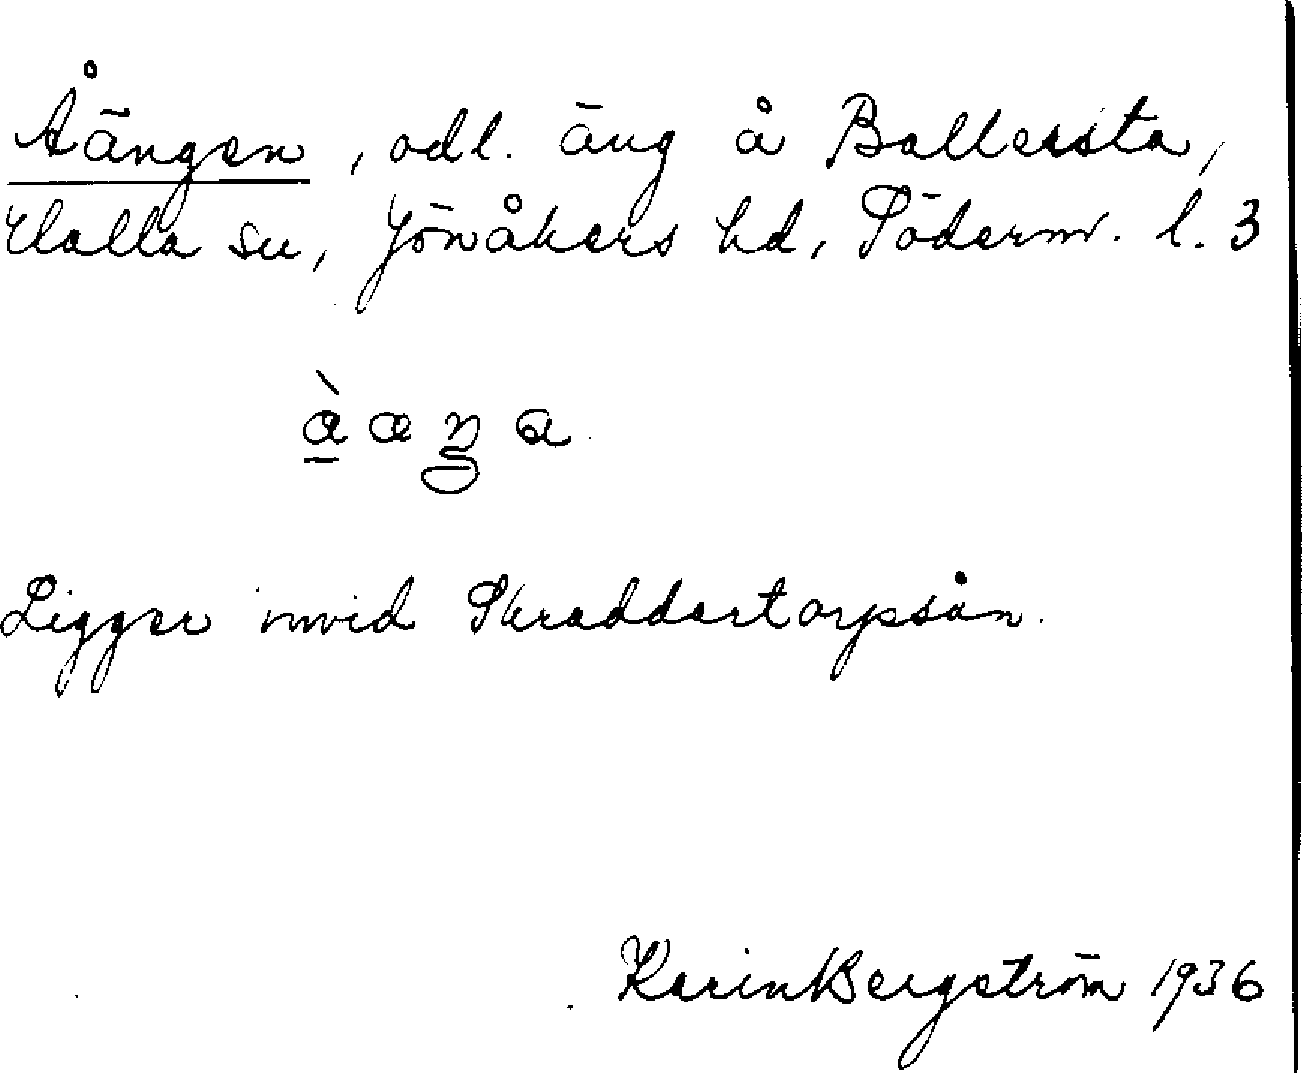 Åängen, odl. äng å Ballersta,
Halla sn, Jönåkers hd, Söderm. l. 3
Ligger invid Skraddartorpsån.
Karin Bergström 1936